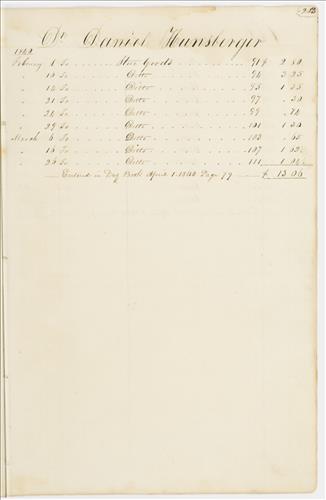 Dr Daniel Hunsberger
February 1 To Store Goods 91 $ 2 50
" 10 To Ditto 94 3 25
" 14 To Ditto 95 1 25
" 21 To Ditto 97 . 20
" 24 To Ditto 99 . 74
" 29 To Ditto 101 1 30
March 6 To Ditto 103 . 65
" 16 To Ditto 107 1
" 26 To Ditto 111 1
Entered in Day Book April 1. 1840 Page 79 $ 13 06